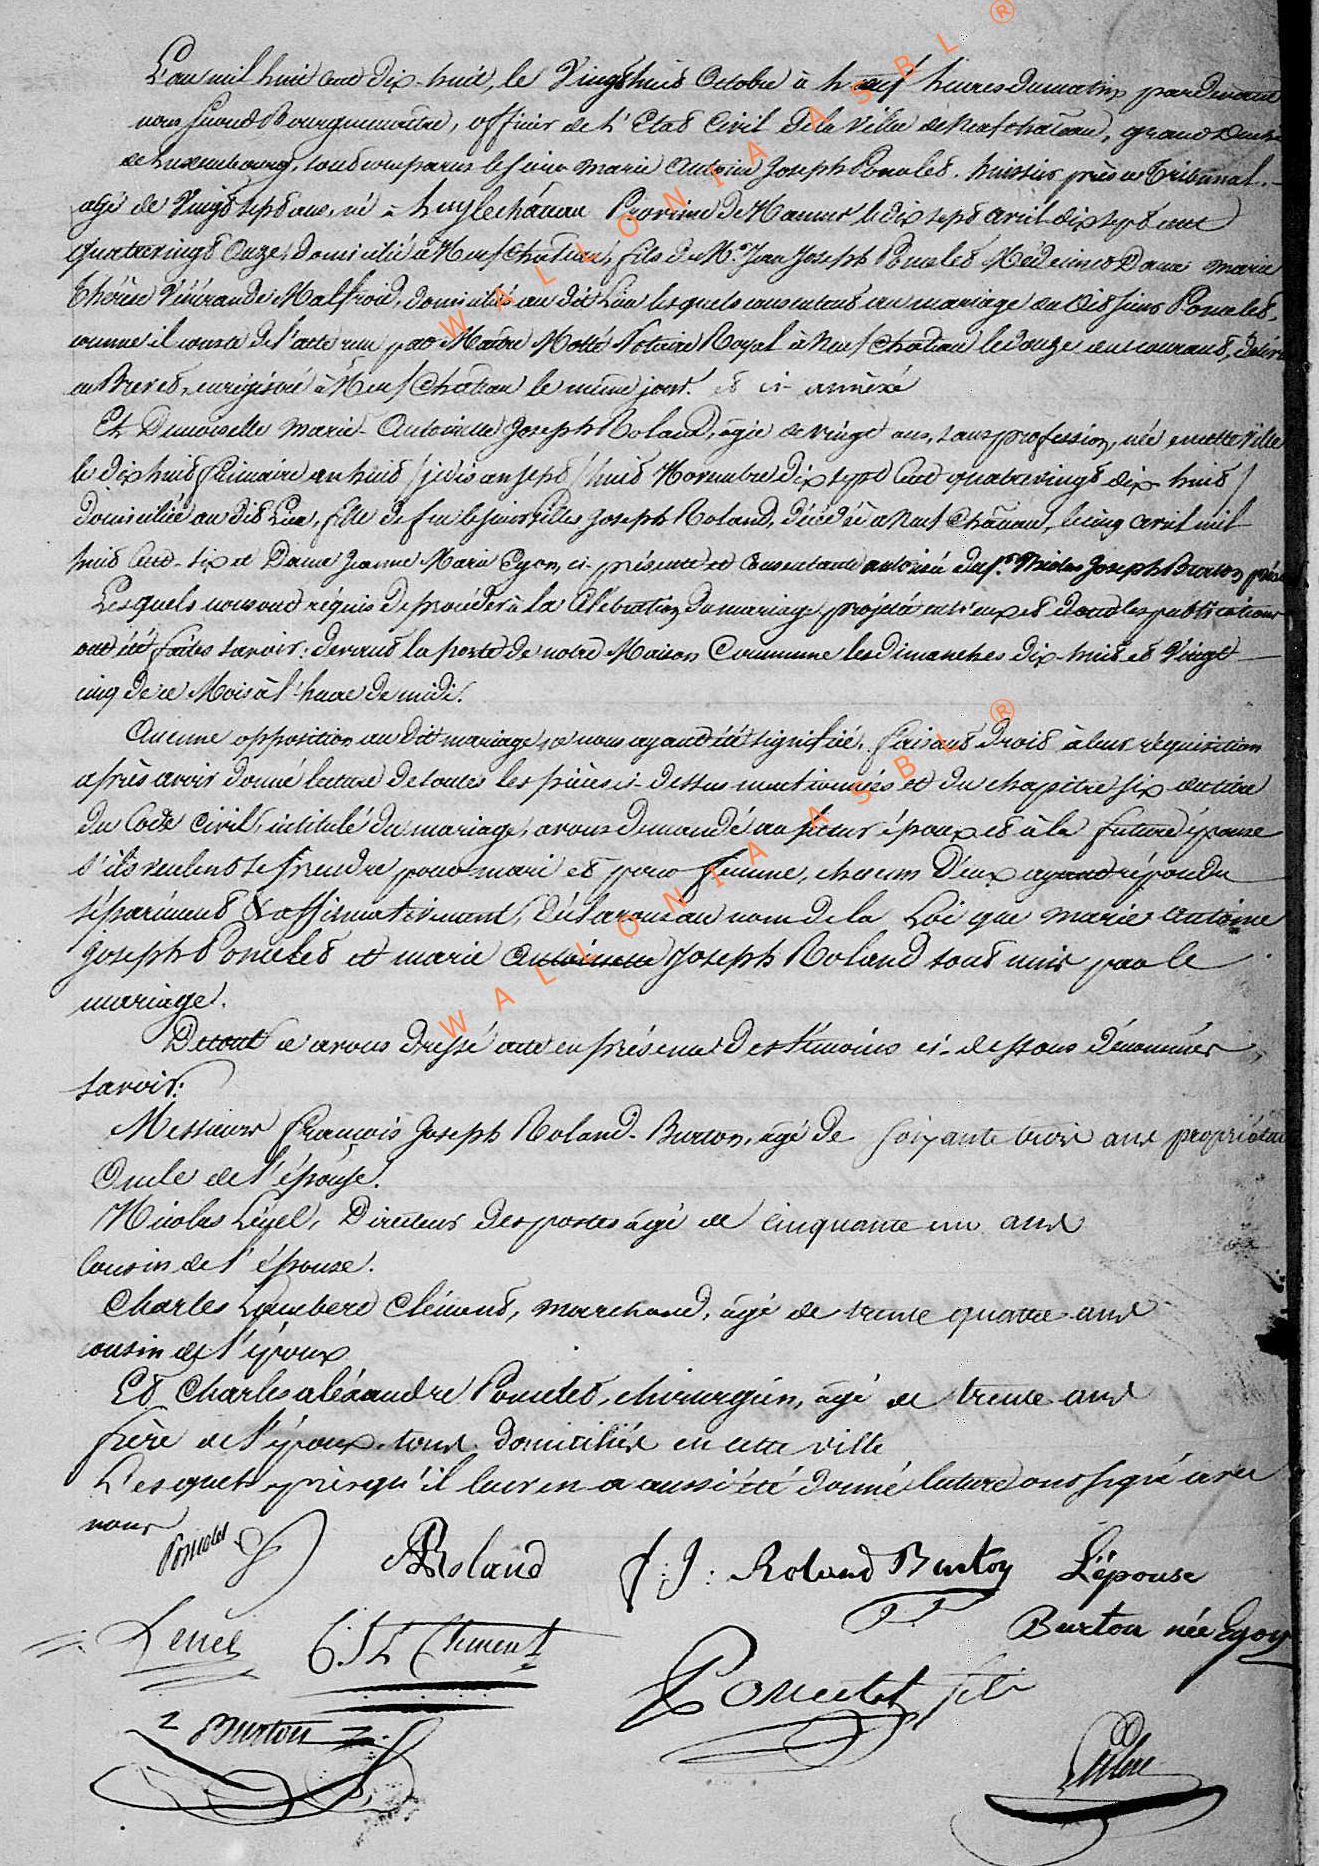 L'an mil huit cent dix-huit, le Vingt huit Octobre à neuf heures du matin pardevant
nous Second Bourguemaître, officier de l'Etat Civil de la Ville de Neufchâteau, grand Duché
de Luxembourg, sont comparus le sieur Marie Antoine Joseph Poncelet, huissier près ce Tribunal,
agé de Vingt sept ans, né à Province de Namur le dix sept avril dix sept cent
quatrevingt Onze, domicilié à Neufchâteau, fils de Mr Jean Joseph Poncelet Médecin et Dame Marie
Thérèse Malfroid, domiciliés au dit Lieu lesquels consentent au mariage du dit sieur Poncelet,
comme il conste de l'acte reçu par Maître Motté Notaire Royal à Neufchâteau le onze du courant, délivré
en Brevet, enrégistré à Neufchâteau le même jour. et ci annéxé
Et Demoiselle Marie Antoinette Joseph Roland, âgée de vingt ans, sans profession, née en cette Ville
le dix huit frimaire an huit / jadis an sept / huit Novembre dix sept Cent quatrevingt dix-huit /
domiciliée au dit Lieu, fille de feu le sieur Gilles Joseph Roland, décédé à Neufchâteau, le cinq avril mil
huit Cent-six et Dame Jeanne Marie Egon, ci-présente et Consentante autorisée du Sr Nicolas Joseph Burton
Lesquels nous ont réquis de procéder à la Célébration du mariage projeté entr'eux et dont les publications
ont été faites savoir: devant la porte de notre Maison Commune les dimanches dix-huit et Vingt
cinq de ce Mois à l'heure de midi.
Aucune opposition au dit mariage ne nous ayant été signifiée, faisant droit à leur réquisition
après avoir donné lecture de toutes les pièces ci-dessus mentionnées et du chapitre six du titre
du Code Civil, intitulé du mariage, avons demandé au futur époux et à la future épouse
s'ils veulent se prendre pour mari et pour femme, chacun d'eux ayant répondu
séparément & affirmativement, Déclarons au nom de la Loi que Marie Antoine
Joseph Poncelet et Marie Antoinette Joseph Roland sont unis par le
mariage.
De tout ce avons dressé acte en présence des témoins ci-dessous dénommés,
savoir:
Messieurs François Joseph Roland-Burton, âgé de soixante trois ans propriétaire
Oncle de l'épouse.
Nicolas Directeur des postes âgé de cinquante un ans
Cousin de l'épouse.
Charles Lambert Clément, marchand, âgé de trente quatre ans
cousin de l'époux
Et Charles alexandre Poncelet, chirurgien, âgé de trente ans
frère de l'époux. tous domiciliés en cette ville
Lesquels après qu'il leur en a aussi été donné lecture ont signé avec
nous
Poncelet Roland f: J: Roland Burton L'épouse
Burton née Egon
C. L. Clement
Poncelet fils
Burton
WALLONIA ASBL ®
WALLONIA ASBL ®